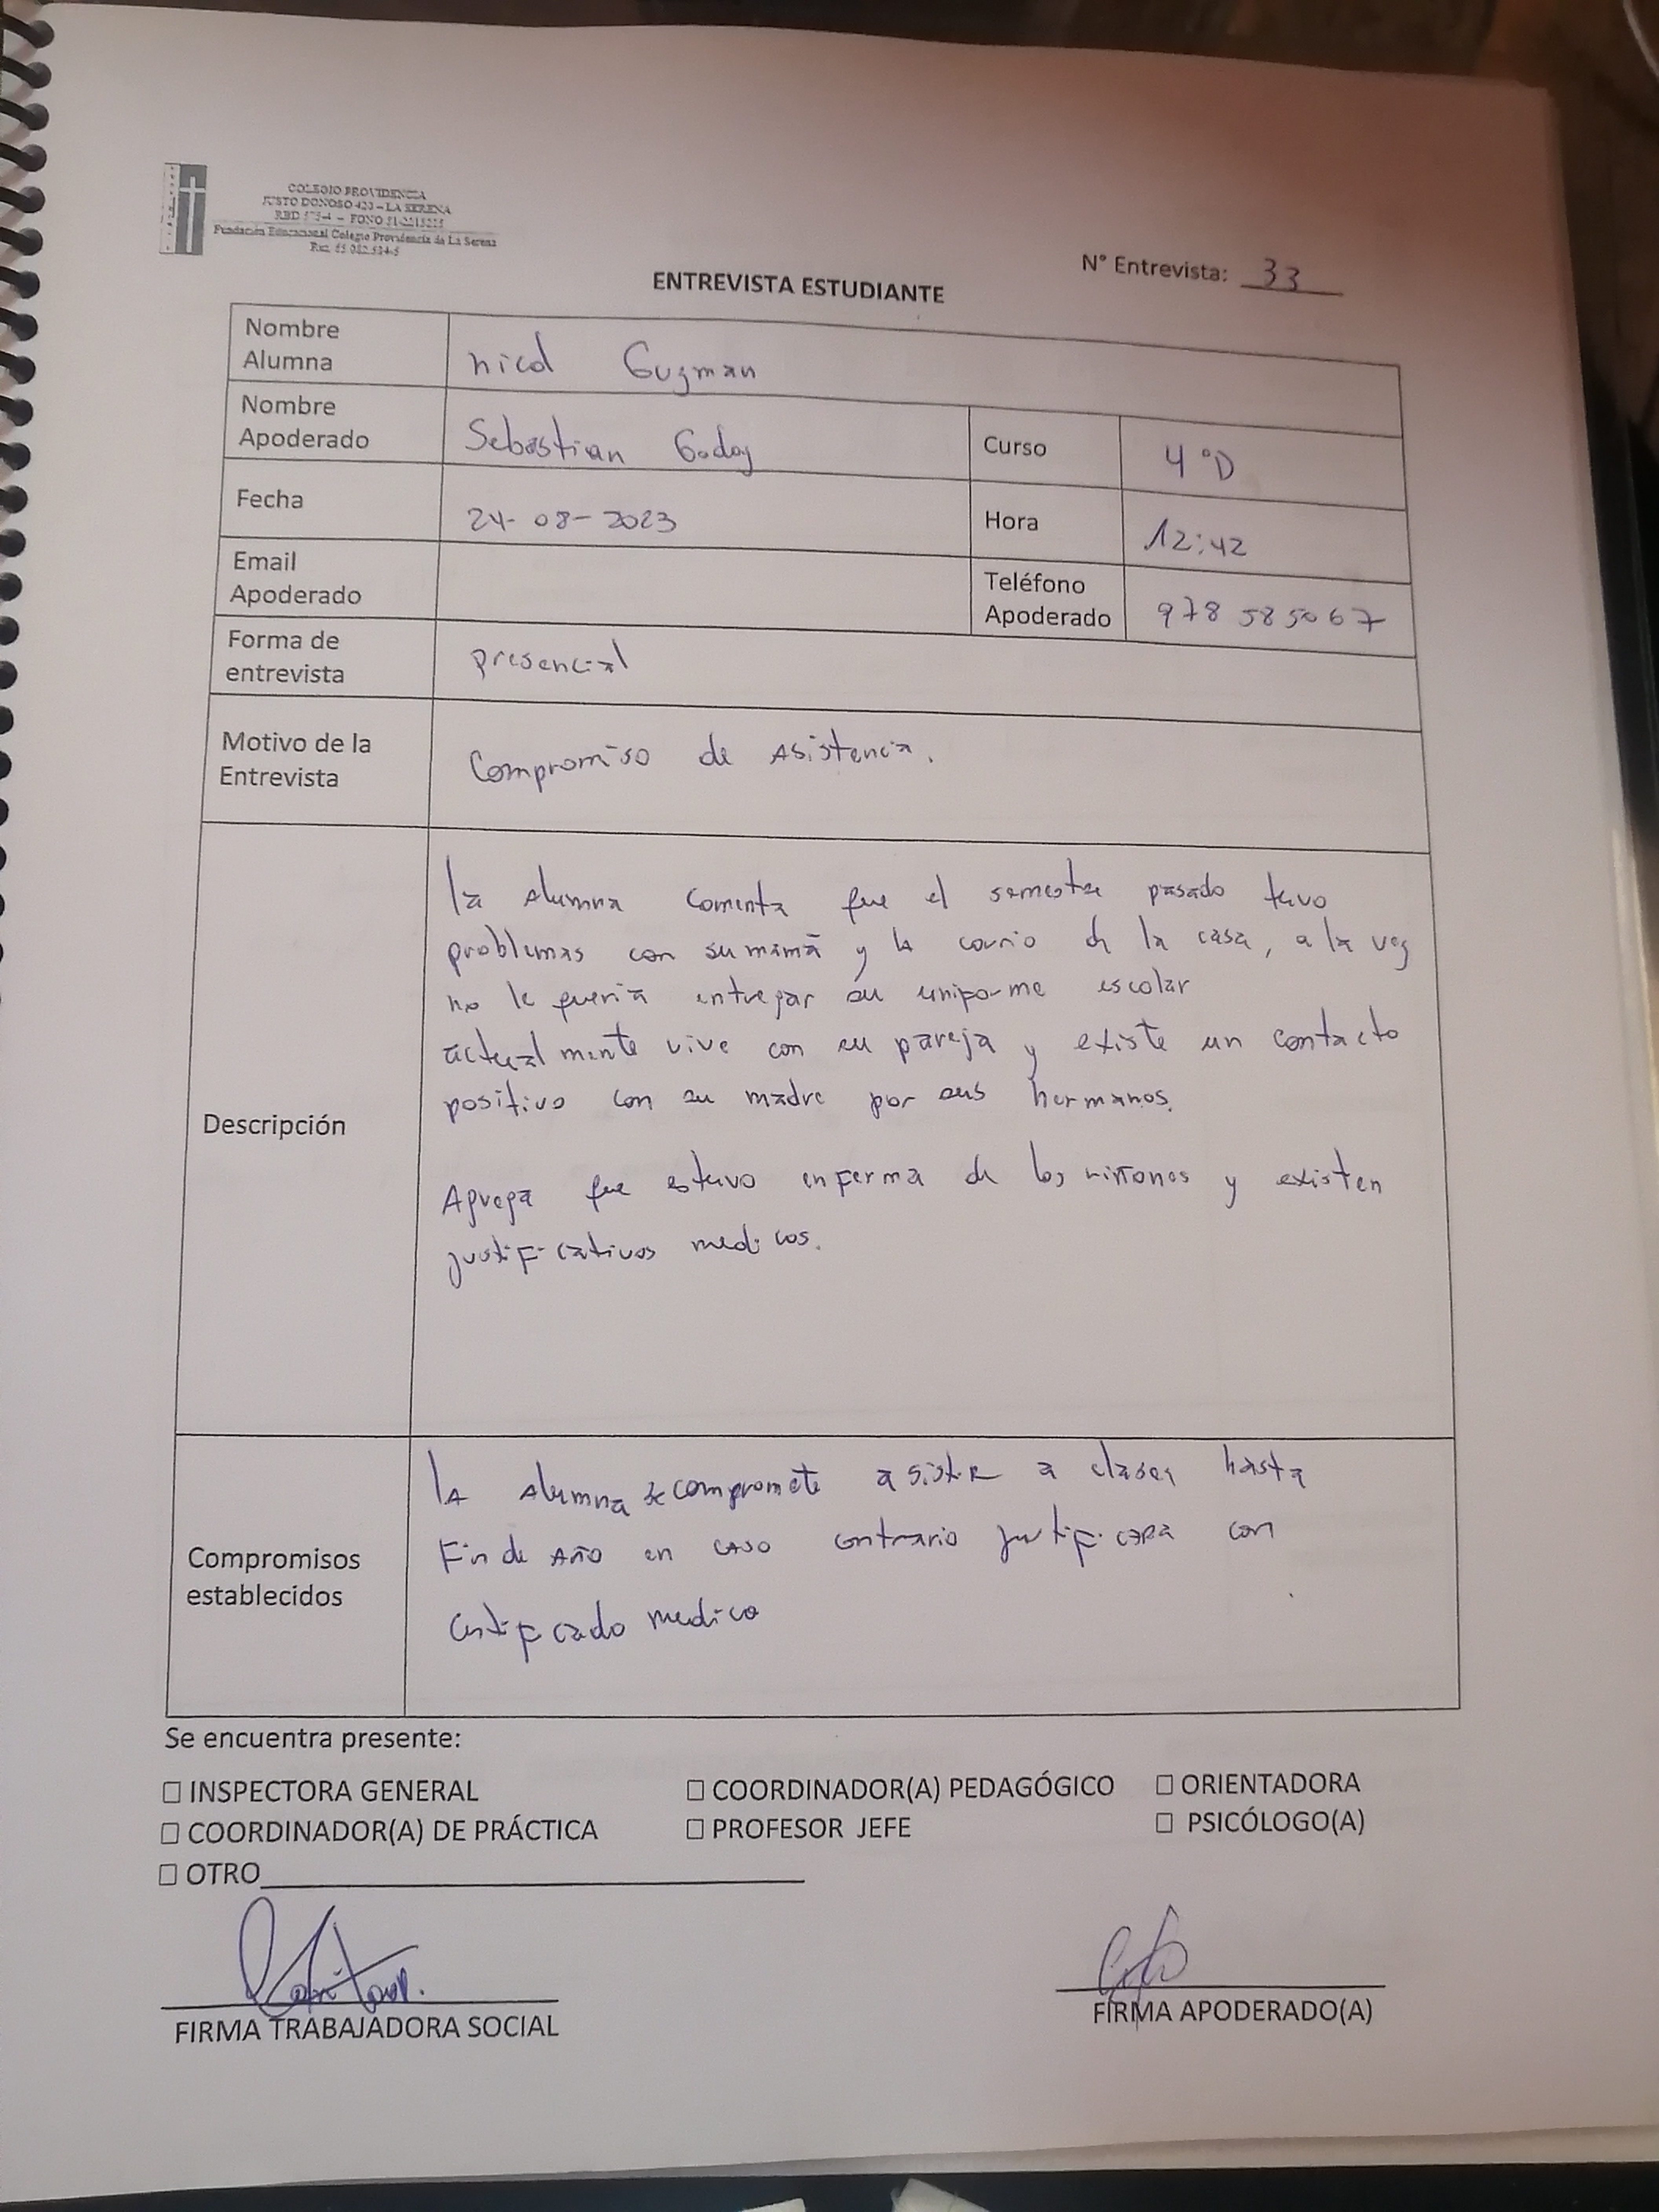 COLEGIO PROVIDENCIA
JUSTO DONOSO 420 – LA SERENA
RBD – FONO
Fundación Educacional Colegio Providencia de La Serena
Rut.
N° Entrevista: 33
ENTREVISTA ESTUDIANTE
Nombre Alumna nicol Guzman
Nombre Apoderado Sebastian Godoy Curso 4°D
Fecha 24-08-2023 Hora 12:42
Email Apoderado Teléfono Apoderado 978 585067
Forma de entrevista presencial
Motivo de la Entrevista Compromiso de Asistencia.
Descripción
la Alumna Comenta que el semestre pasado tuvo
problemas con su mamá y la corrio de la casa, a la vez
no le queria entregar su uniforme escolar
actualmente vive con su pareja y existe un contacto
positivo con su madre por sus hermanos.
Agrega que estuvo enferma de los riñones y existen
justificativos medicos.
Compromisos establecidos
la Alumna se compromete asistir a clases hasta
Fin de Año en caso contrario justificara con
Certificado medico
Se encuentra presente:
☐ INSPECTORA GENERAL ☐ COORDINADOR(A) PEDAGÓGICO ☐ ORIENTADORA
☐ COORDINADOR(A) DE PRÁCTICA ☐ PROFESOR JEFE ☐ PSICÓLOGO(A)
☐ OTRO
FIRMA TRABAJADORA SOCIAL FIRMA APODERADO(A)